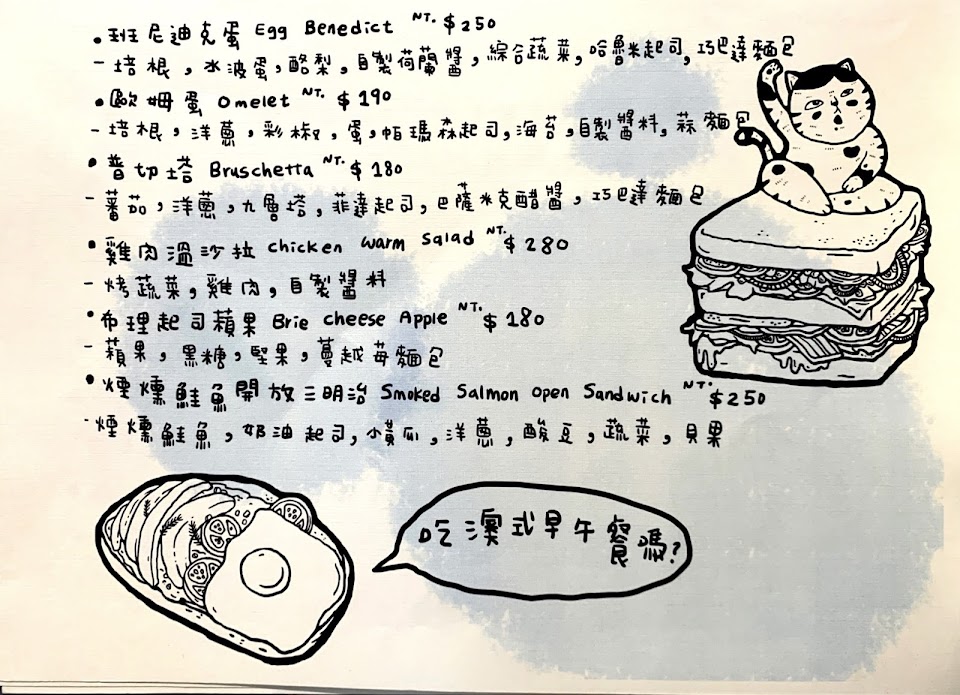 •班尼迪克蛋 Egg Benedict NT. $250
-培根,水波蛋,酪梨,自製荷蘭醬,綜合蔬菜,哈魯米起司,巧巴達麵包
•歐姆蛋 Omelet NT. $190
-培根,洋蔥,彩椒,蛋,帕瑪森起司,海苔,自製醬料,蒜麵包
•普切塔 Bruschetta NT. $180
-蕃茄,洋蔥,九層塔,菲達起司,巴薩米克醋醬,巧巴達麵包
•雞肉溫沙拉 chicken warm salad NT. $280
-烤蔬菜,雞肉,自製醬料
•布理起司蘋果 Brie cheese Apple NT. $180
-蘋果,黑糖,堅果,蔓越莓麵包
•煙燻鮭魚開放三明治 Smoked Salmon open Sandwich NT. $250
-煙燻鮭魚,奶油起司,小黃瓜,洋蔥,酸豆,蔬菜,貝果
吃澳式早午餐嗎?